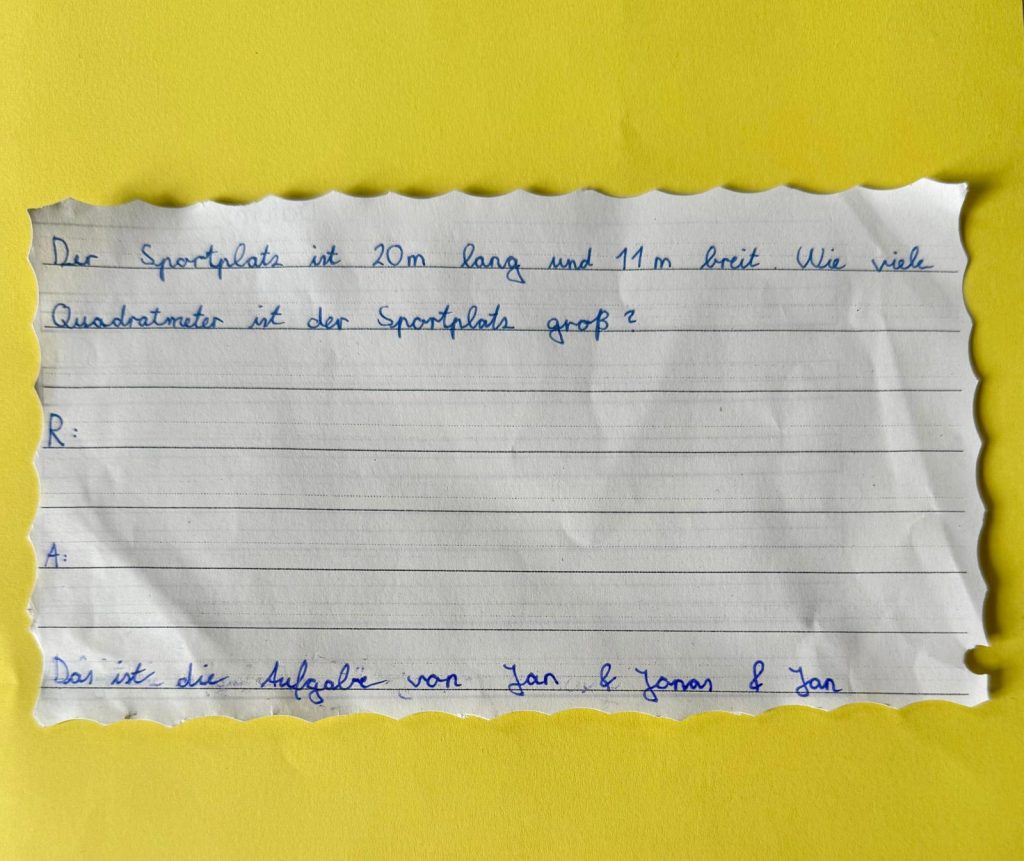 Der Sportplatz ist 20m lang und 11m breit. Wie viele
Quadratmeter ist der Sportplatz groß?
R:
A:
Das ist die Aufgabe von Jan & Jonas & Jan